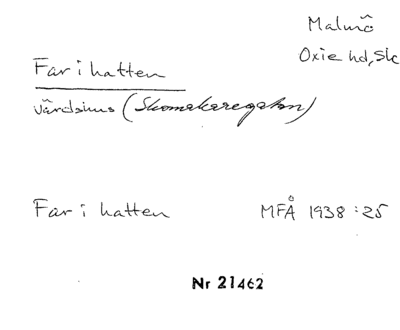 Malmö
Oxie hd, Sk
Far i hatten
värdshus (Skomakaregatan)
Far i hatten MFÅ 1938:25
Nr 21462